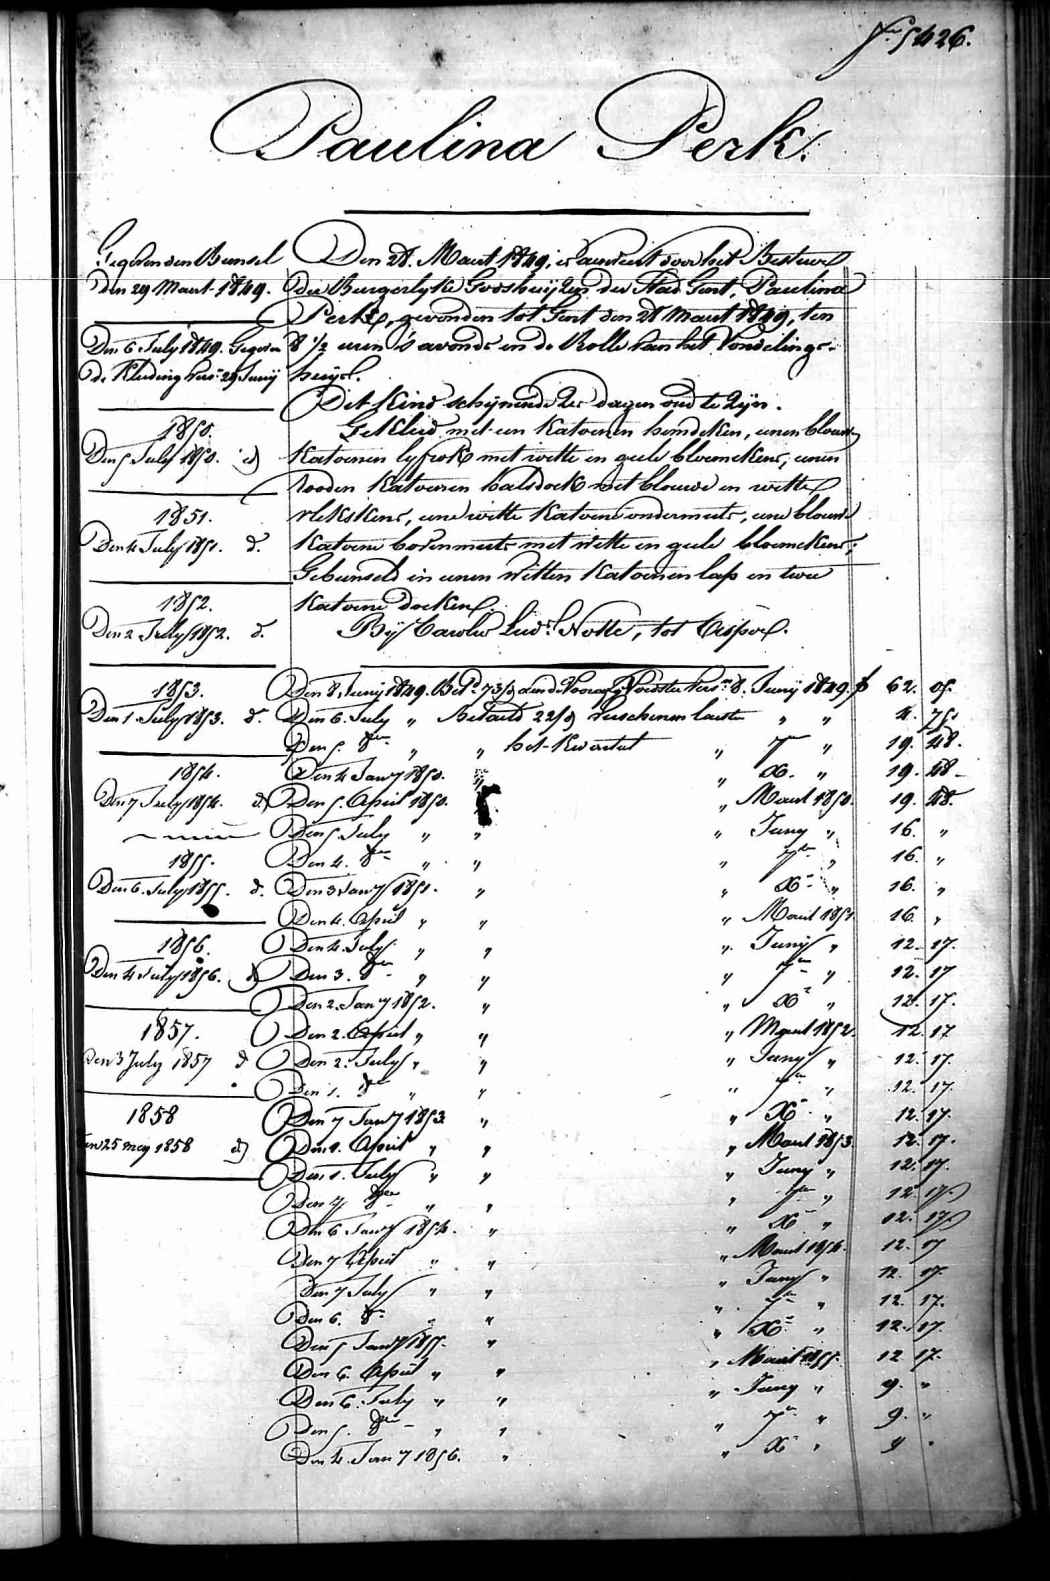 N.° 5426.
Paulina Perk.
Gegeven den Bunsel
Den 29 Maart 1849.
Den 6 July 1849. Gegeven
de Kleeding vers. 29 Junij
1850.
Den 5 July 1850. d.
1851.
Den 4 July 1851. d.
1852.
Den 2 July 1852. d.
1853.
Den 1 July 1853. d.
1854.
Den 7 July 1854. d.
1855.
Den 6 July 1855. d.
1856.
Den 4 July 1856. d.
1857.
Den 3 July 1857 d
1858
den 25 mey 1858 d
Den 28. Maart 1849, is aenveert door het Bestuer
der Burgerlyke Godshuijzen der Stad Gent, Paulina
Perk, gevonden tot Gent den 28 Maart 1849, ten
8 1/2 uren 's avonds in de Rolle van het Vondelinge-
huijs.
Dit kind schijnende Zes dagen oud te Zijn.
Gekleed met een Katoenen hemdeken, eenen blouwen
Katoenen lyfrok met witte en geele bloemekens, eenen
rooden Katoenen halsdoek met blouwe en witte
vlekskens, eene witte Katoene ondermuts, eene blouwe
Katoene bovenmuts met witte en geele bloemekens;
Gebunseld in eenen witten Katoenen lap en twee
Katoene doeken.
Bij Carolus Lud. Notte, tot Crispoel.
Den 8 Junij 1849. Bet. 73/9 aen de Voorafg. Voedster vers. 8. Junij 1849. f 62. 05.
Den 6. July " Betaeld 22/9 verschenen laeste " " 4. 75.
Den 5. 8ber " " het Kwartael " 7ber " 19. 48.
Den 4 Jan.y 1850. " " X. " 19. 48
Den 5. April 1850. " Maart 1850. 19. 48.
Den 5 July " " " Juny " 16. "
Den 4. 8ber " " " 7ber " 16. "
Den 3 Jan.y 1851. " " X. " 16. "
Den 4. April " " " Maart 1851 16. "
Den 4. July " " " Junij " 12. 17.
Den 3. 8ber " " " 7ber " 12. 17
Den 2. Jan.y 1852. " " X. " 12. 17.
Den 2. April " " " Maart 1852. 12. 17
Den 2. July " " " Juny " 12. 17.
Den 1. 8ber " " " 7ber " 12. 17.
Den 7 Jan.y 1853 " " X. " 12. 17.
Den 1. April " " " Maart 1853. 12. 17.
Den 1. July " " " Juny " 12. 17.
Den 7 8ber " " " 7ber " 12. 17.
Den 6 Jan.y 1854. " " X " 12. 17.
Den 7 April " " " Maart 1854. 12. 17
Den 7 July " " " Juny " 12. 17.
Den 6. 8ber " " " 7ber " 12. 17.
Den 5 Jan.y 1855. " " X. " 12. 17.
Den 6. April " " " Maart 1855. 12 17.
Den 6. July " " " Juny " 9. "
Den 5. 8ber " " " 7ber " 9. "
Den 4. Jan.y 1856. " " X " 9 "